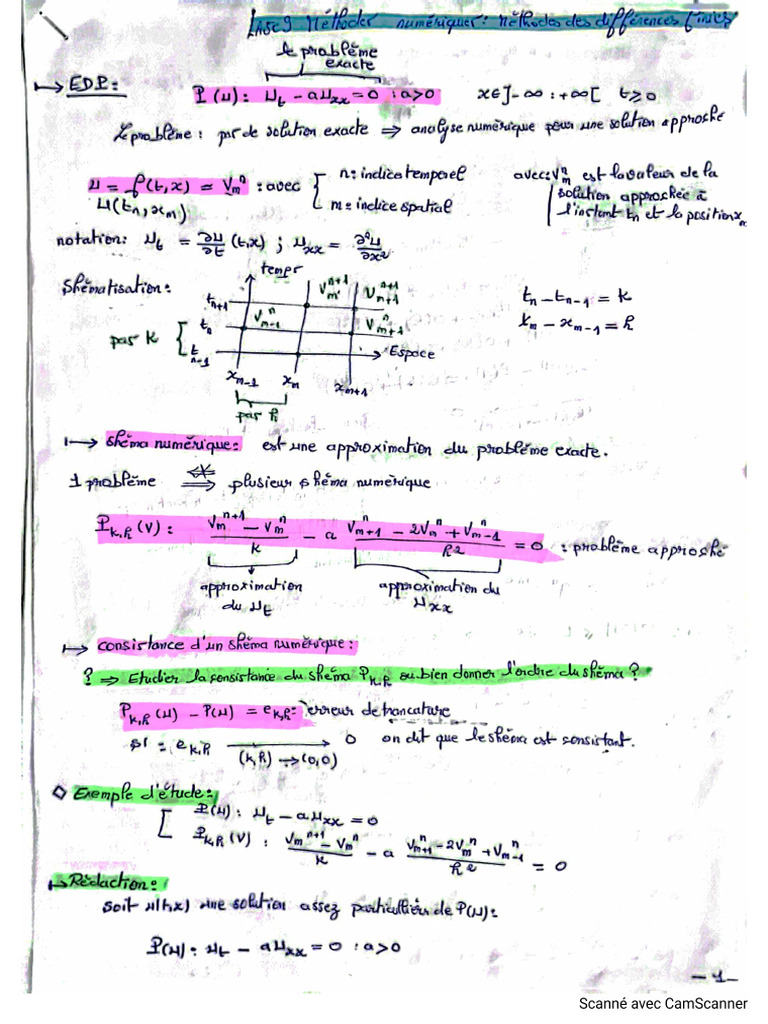 Méthodes numériques: Méthodes des différences finies
le problème
exacte
→ EDP: P(u): u_t - a u_xx = 0 : a>0   x∈]-∞:+∞[   t≥0
Le problème: ps de solution exacte ⇒ analyse numérique pour une solution approché
u = f(t,x) = V_m^n : avec { n: indice temporel   avec: V_m^n est la valeur de la
u(t_n, x_m)   m = indice spatial   solution approchée à
l'instant t_n et la position x_m
notation: u_t = ∂u/∂t (t,x) ; u_xx = ∂²u/∂x²
temps
Shématisation:   V_m^{n+1}   V_{m+1}^{n+1}
t_{n+1}   t_n - t_{n-1} = k
par k { t_n   V_{m-1}^n   V_{m+1}^n   x_m - x_{m-1} = h
t_{n-1}   Espace
x_{m-1}   x_m   x_{m+1}
par h
→ shéma numérique: est une approximation du problème exacte.
1 problème ⇒ plusieur shéma numérique
P_{k,h}(v): (V_m^{n+1} - V_m^n)/k - a (V_{m+1}^n - 2V_m^n + V_{m-1}^n)/h² = 0 : problème approché
approximation   approximation du
du u_t   u_xx
→ consistance d'un shéma numérique:
? ⇒ Etudier la consistance du shéma P_{k,h} ou bien donner l'ordre du shéma ?
P_{k,h}(u) - P(u) = e_{k,h}: erreur de troncature
si: e_{k,h} → 0   on dit que le shéma est consistant.
(k,h) → (0,0)
◇ Exemple d'étude:
[ P(u): u_t - a u_xx = 0
P_{k,h}(v): (V_m^{n+1} - V_m^n)/k - a (V_{m+1}^n - 2V_m^n + V_{m-1}^n)/h² = 0
→ Rédaction:
soit u(t,x) une solution assez particulièr de P(u):
P(u): u_t - a u_xx = 0 : a>0
- 1 -
Scanné avec CamScanner